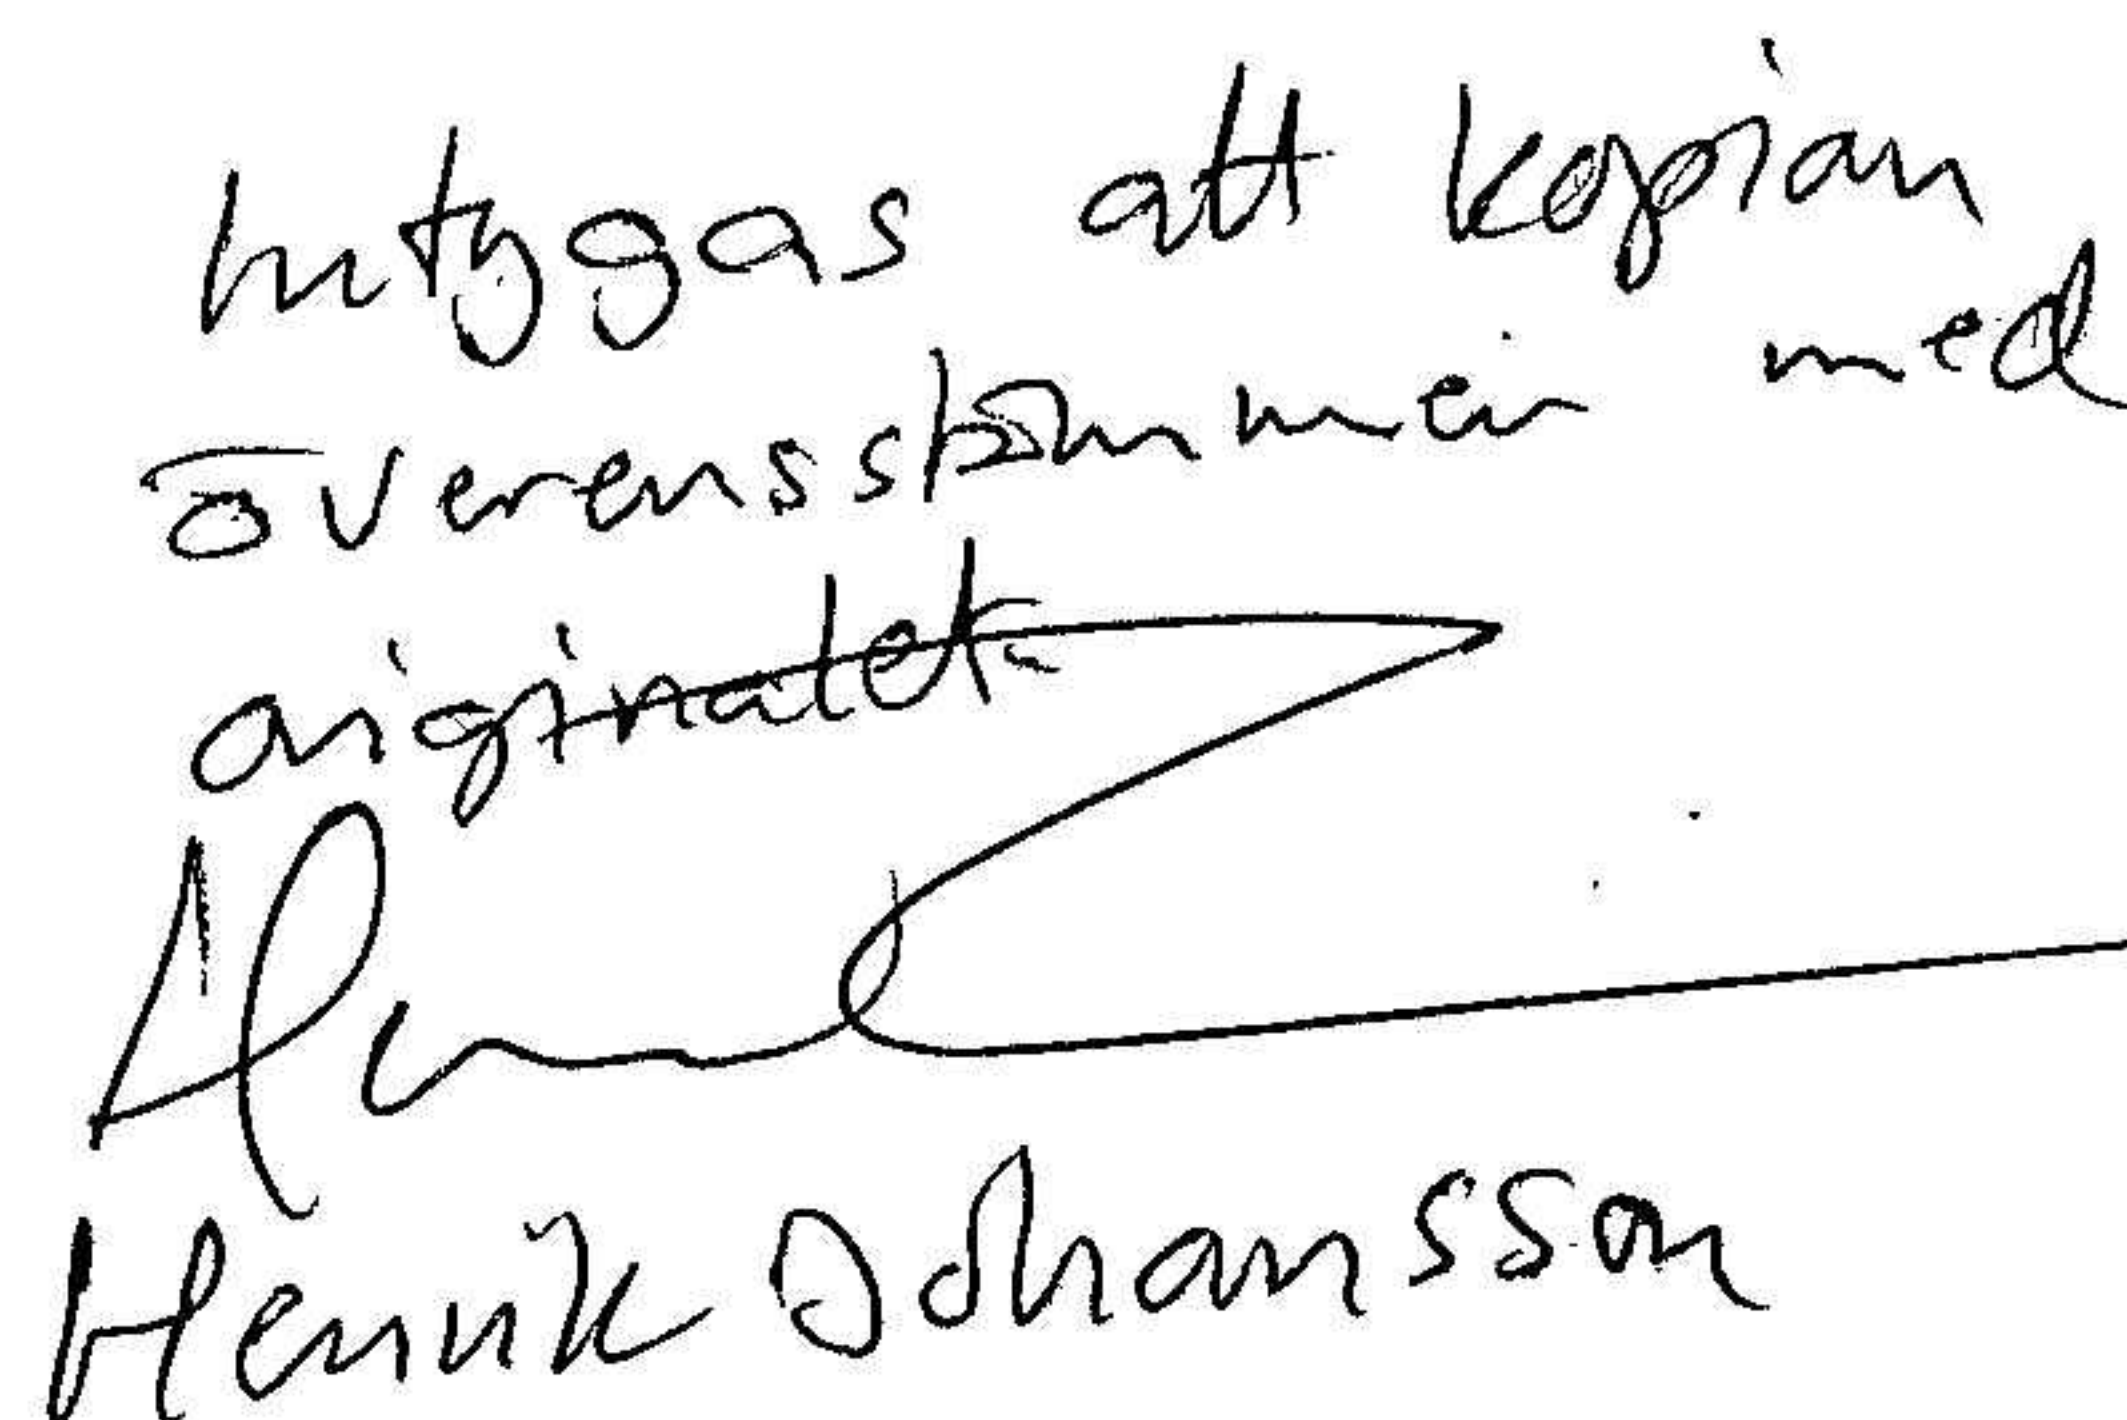 Intygas att kopian
överensstämmer med
originalet
Henrik Johansson